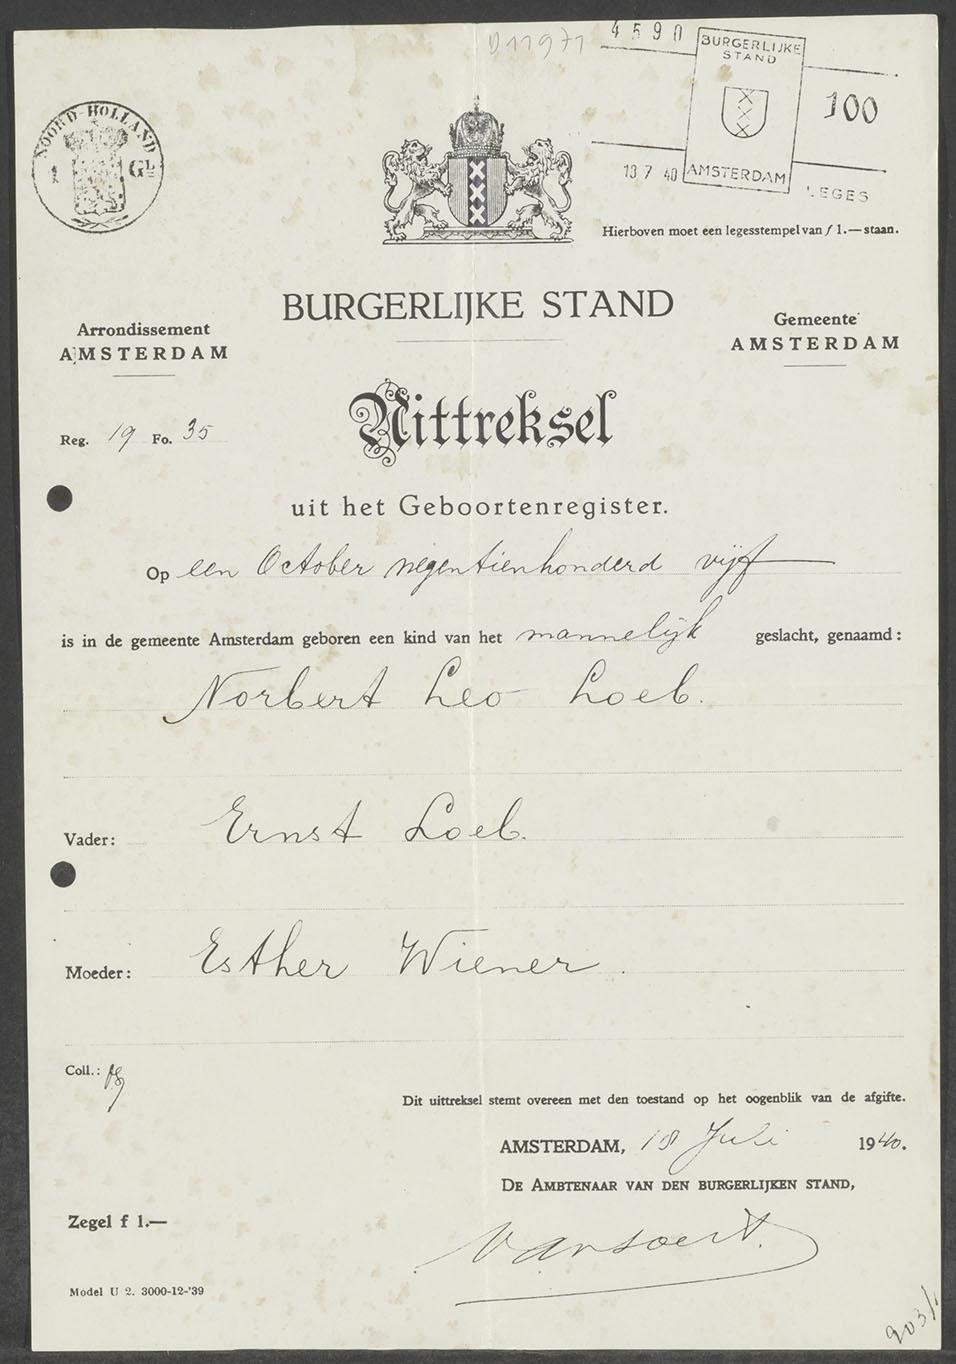 D11971
4590
BURGERLIJKE
STAND
100
NOORD-HOLLAND
1 GL
AMSTERDAM
LEGES
Hierboven moet een legesstempel van f 1.— staan.
BURGERLIJKE STAND
Arrondissement
AMSTERDAM
Gemeente
AMSTERDAM
Uittreksel
Reg. 19 Fo. 35
uit het Geboortenregister.
Op een October negentienhonderd vijf
is in de gemeente Amsterdam geboren een kind van het mannelijk geslacht, genaamd:
Norbert Leo Loeb.
Vader: Ernst Loeb.
Moeder: Esther Wiener.
Coll.:
Dit uittreksel stemt overeen met den toestand op het oogenblik van de afgifte.
AMSTERDAM, 18 Juli 1940.
DE AMBTENAAR VAN DEN BURGERLIJKEN STAND,
Zegel f 1.—
Model U 2. 3000-12-'39